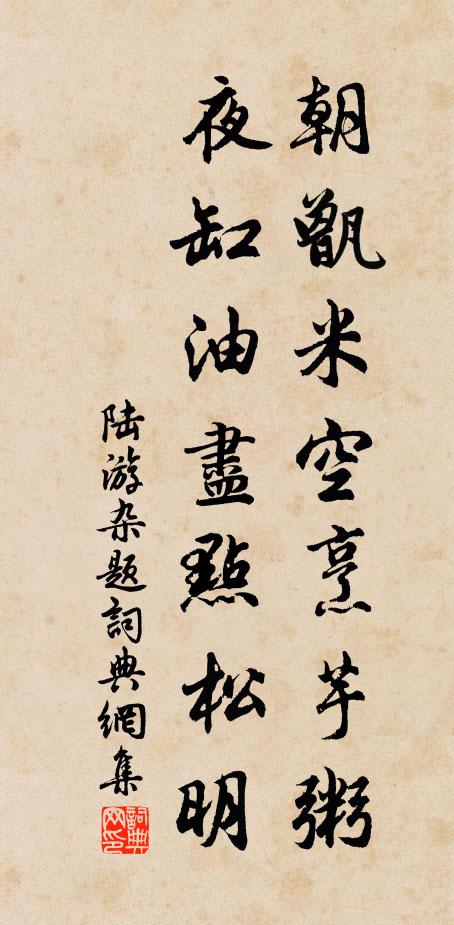 朝甑米空烹芋粥
夜缸油盡點松明
陆游杂题詞典網集
詞典網印